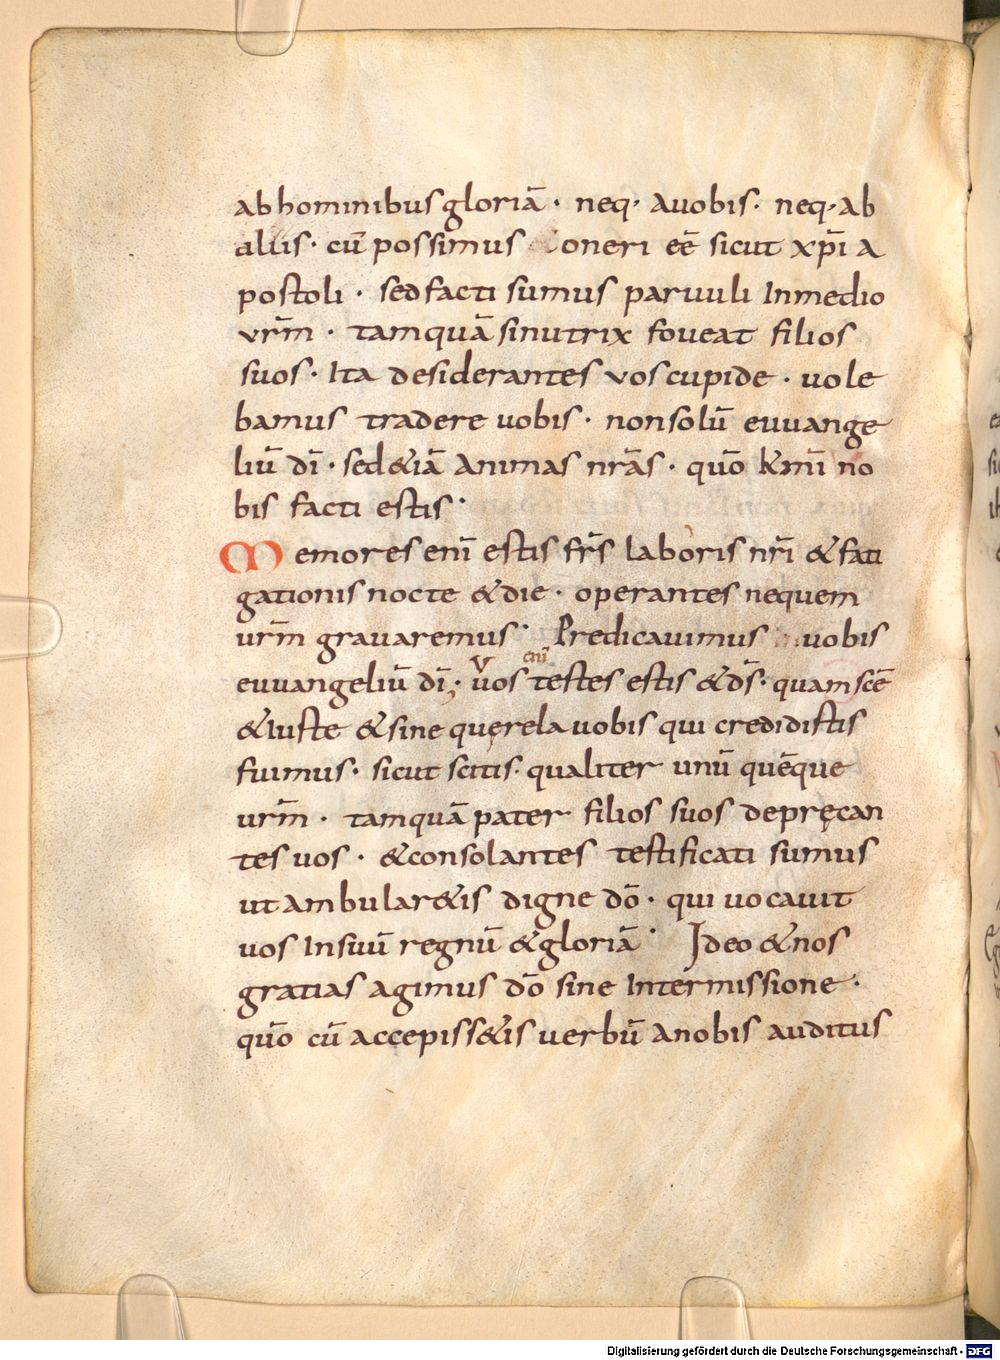 ab hominibus gloriā · neq· a uobis · neq· ab
aliis · cū possimus oneri eē sicut xp̄i a
postoli · sed facti sumus paruuli in medio
vr̄m · tamquā si nutrix foueat filios
suos · Ita desiderantes vos cupide · uole
bamus tradere uobis · non solū euuange
liū dī · sed &iā animas nr̄as · quō km̄i no
bis facti estis ·
Memores enī estis fr̄s laboris nr̄i & fati
gationis nocte & die · operantes nequem
urm̄ grauaremus · Predicauimus uobis
enī
euuangeliū dī · vos testes estis & d̄s · quam scē
& iuste & sine querela uobis qui credidistis
fuimus · sicut scitis · qualiter unū quēque
urm̄ · tamquā pater filios suos depręcan
tes uos · & consolantes testificati sumus
ut ambular&is digne dō · qui uocauit
uos in suū regnū & gloriā · Ideo & nos
gratias agimus dō sine intermissione ·
quō cū accepiss&is uerbū a nobis auditus
Digitalisierung gefördert durch die Deutsche Forschungsgemeinschaft - DFG